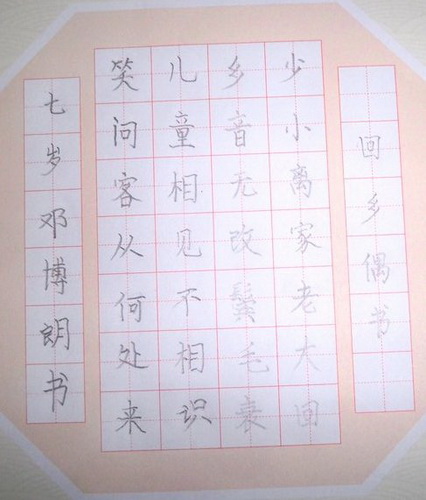 回乡偶书
少小离家老大回
乡音无改鬓毛衰
儿童相见不相识
笑问客从何处来
七岁邓博朗书